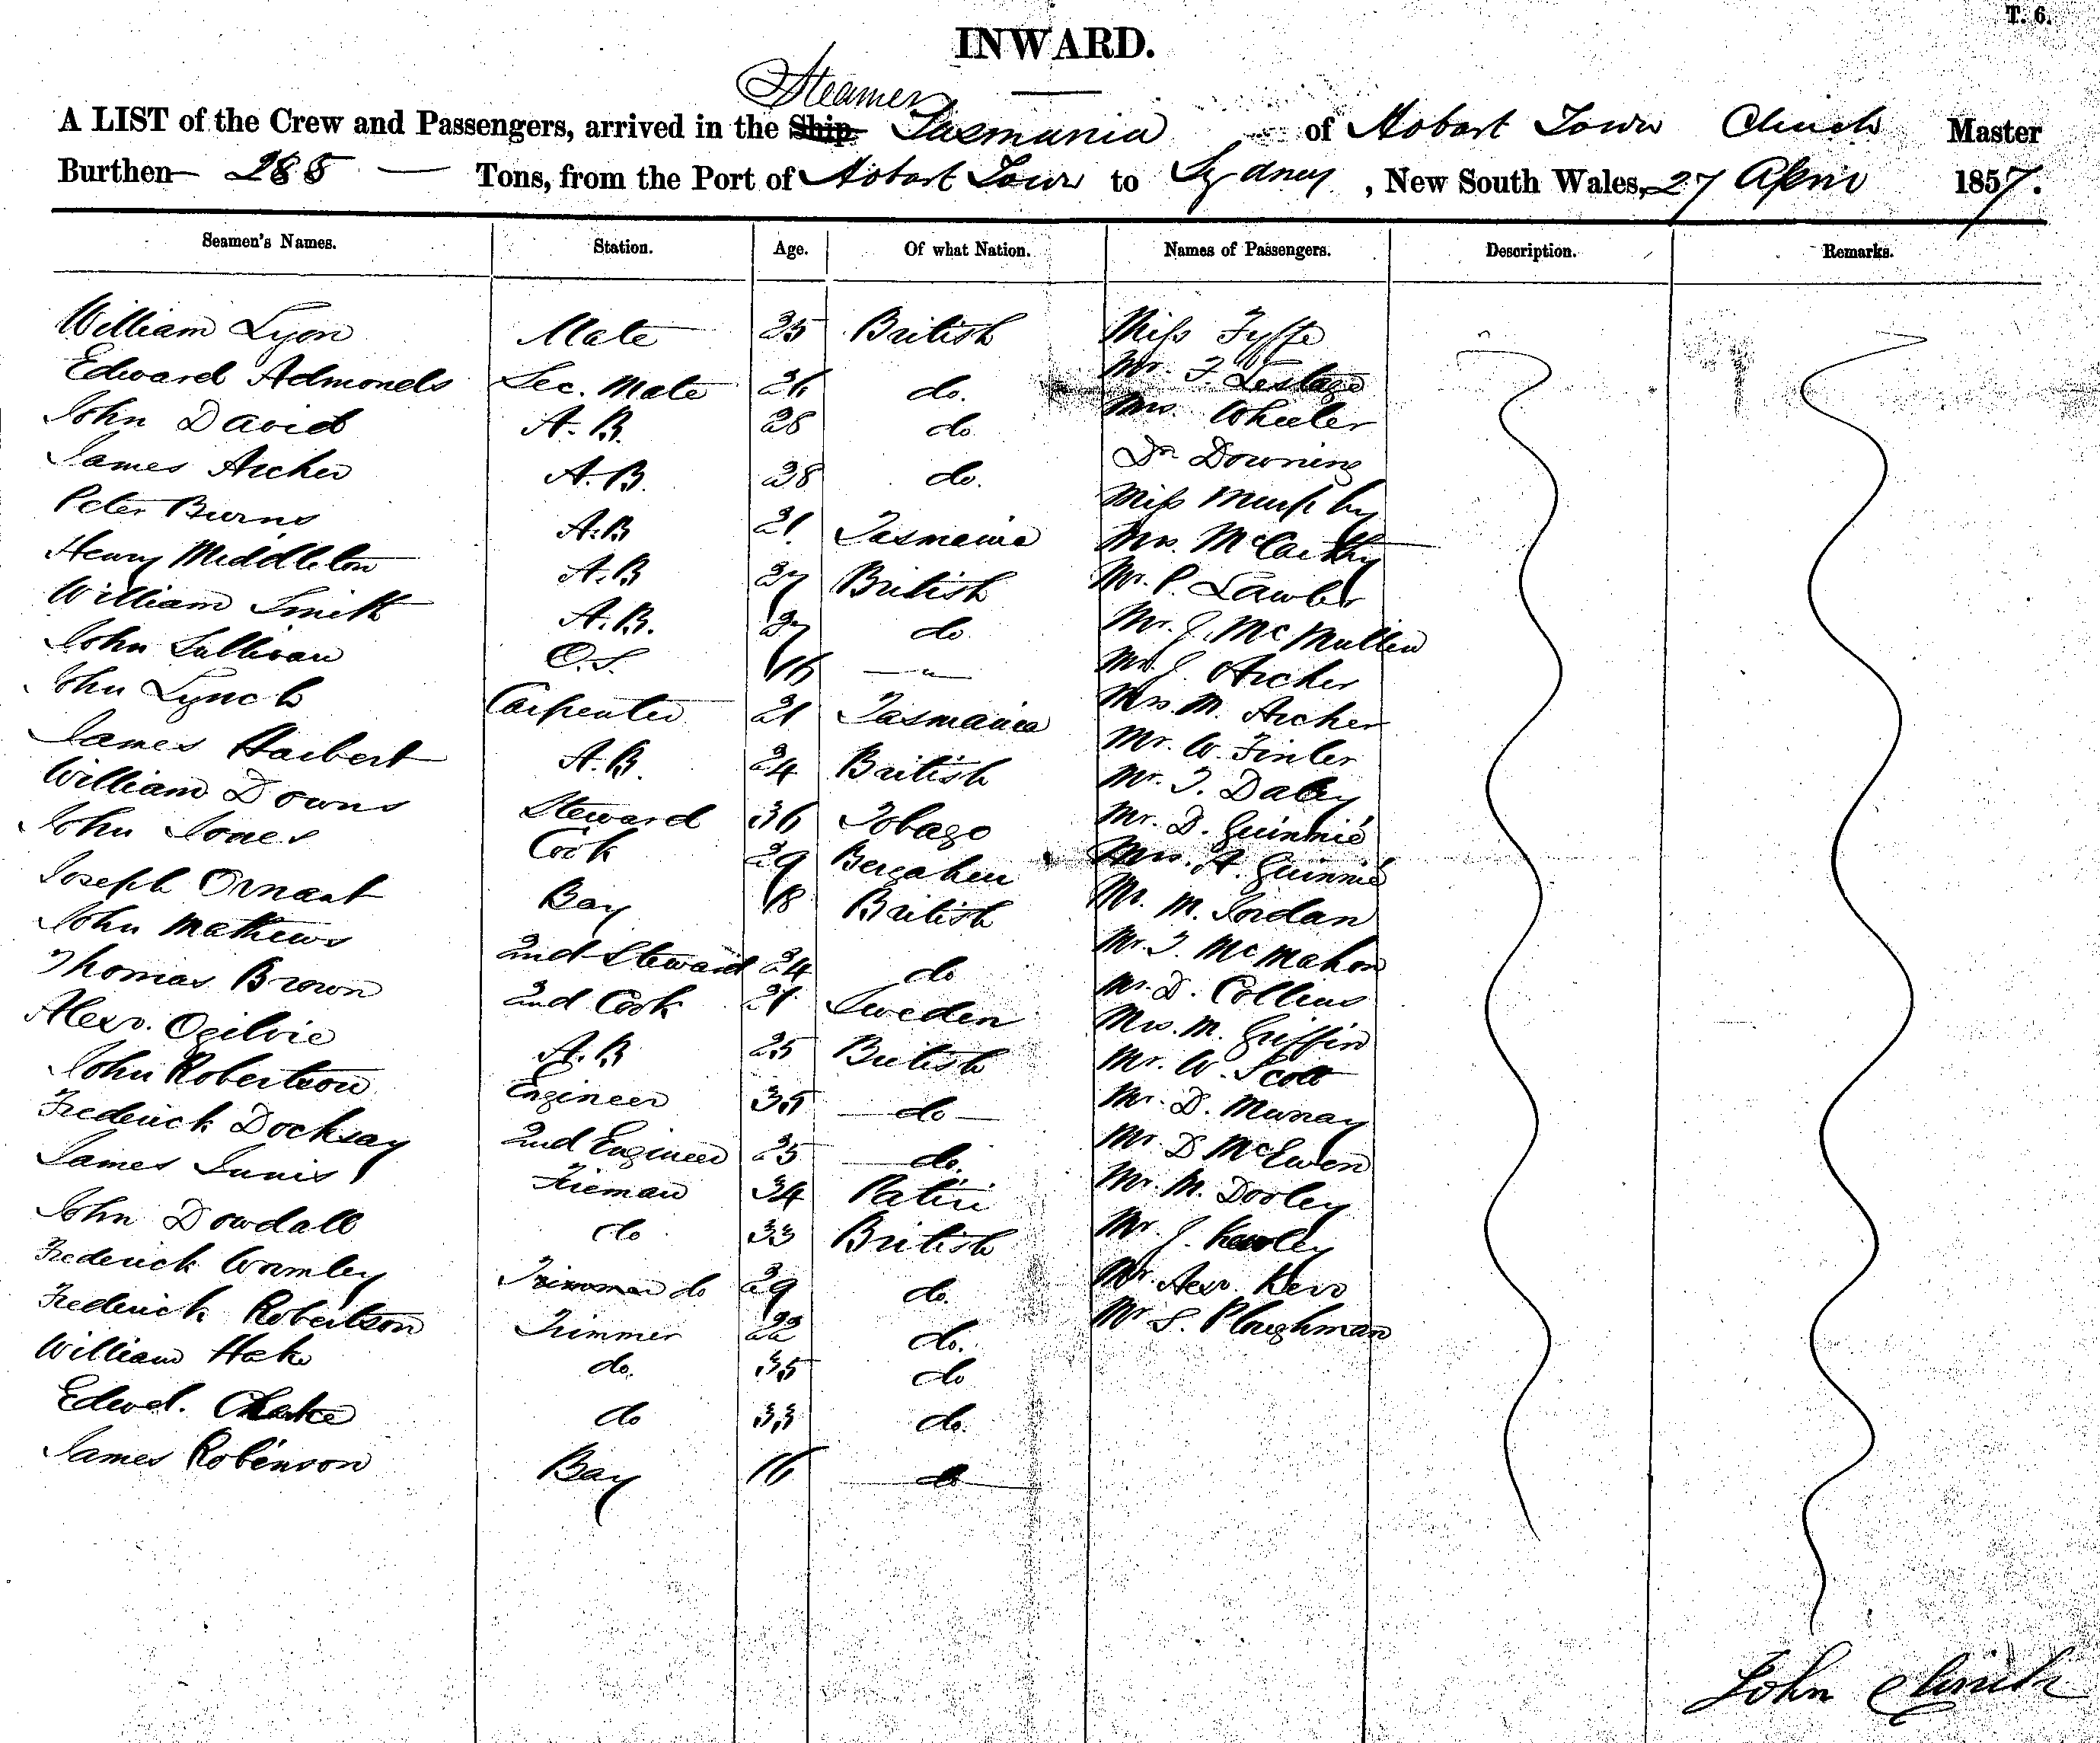 T. 6.
INWARD.
Steamer
A LIST of the Crew and Passengers, arrived in the Ship Tasmania of Hobart Town Clinch Master
Burthen 285 Tons, from the Port of Hobart Town to Sydney, New South Wales, 27 April 1857.
Seamen's Names. Station. Age. Of what Nation. Names of Passengers. Description. Remarks.
William Lyon Mate 35 British Miss Fyffe
Edward Admonds Sec. Mate 26 do. Mr. F.
John David A.B. 28 do Mrs. Wheeler
James Archer A.B. 38 do. Dr Downing
Peter Burns A.B 21 Tasmania Miss Murphy
Henry Middleton A.B 27 British Mrs. McCarthy
William Smith A.B. 27 do. Mr. P. Lawler
John Sullivan O.S. 16 — " — Mr. J. McMullen
John Lynch Carpenter 21 Tasmania Mr J. Archer
James Harbert A.B. 24 British Mrs. M. Archer
William Downs Steward 36 Tobago Mr. W. Finler
John Jones Cook 29 Mr. T. Daley
Joseph Ornant Boy 18 British Mr. D. Guinnié
John Mathews 2nd Steward 24 do Mrs. A. Guinnié
Thomas Brown 2nd Cook 21 Sweden Mr. M. Jordan
Alexr. Ogilvie A.B 25 British Mr. T. McMahon
John Robertson Engineer 35 do Mr. D. Collins
Frederick Docksay 2nd Engineer 25 do. Mrs. M. Griffin
James Innis Fireman 34 Mr. W. Scott
John Dowdall do 33 British Mr. D. Murray
Frederick Wormley do 29 do. Mr. D McEwen
Frederick Robertson Trimmer 22 do. Mr. M. Dooley
William Hake do. 35 do Mr. J. Kewley
Edwd. Clarke do 33 do. Mr. Alexr. Kerr
James Robinson Boy 16 do Mr S. Ploughman
John Clinch